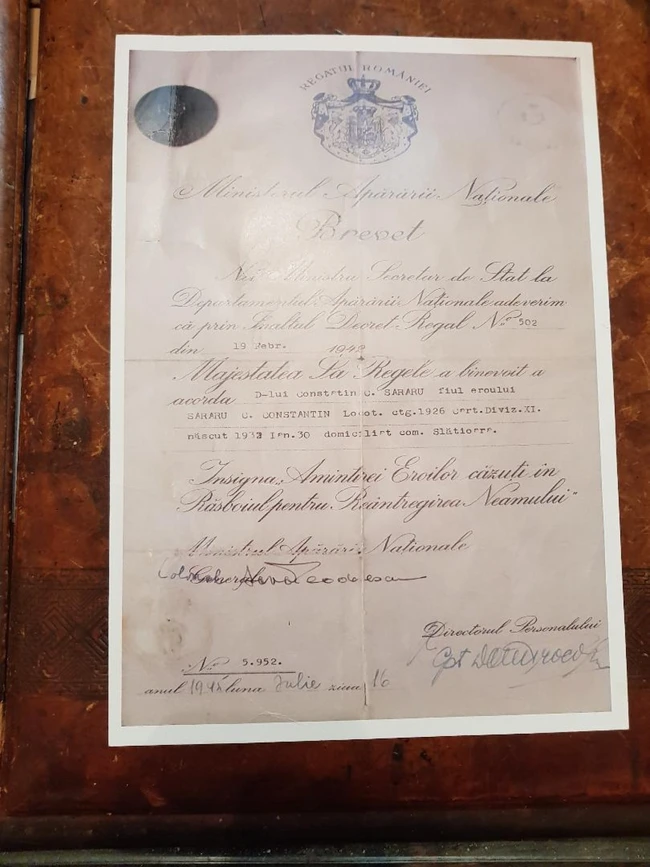 REGATUL ROMÂNIEI
Ministerul Apărării Naționale
Brevet
Noi Ministru Secretar de Stat la
Departamentul Apărării Naționale adeverim
că prin Înaltul Decret Regal No. 502
din 19 Febr. 1942
Majestatea Sa Regele a binevoit a
acorda D-lui Constatin C. SARARU fiul eroului
SARARU C. CONSTANTIN Locot. ctg.1926 Cart.Diviz.XI.
născut 1932 Ian.30 domiciliat com. Slătioara.
Insigna „Amintirei Eroilor căzuți în
Răsboiul pentru Reântregirea Neamului"
Ministrul Apărării Naționale
Directorul Personalului
No. 5.952.
anul 1945 luna Iulie ziua 16